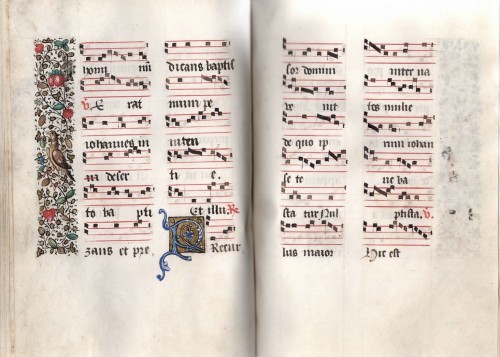 homi ni
V. E rat
iohannes in
in deser
to ba pti
zans et pre
dicans baptis
mum pe
niten
ti e.
Et illu. Re
Precur
sor domini
ve nit
de quo ip
se te
sta tur Nul
lus maior
inter na
tos mulie
rum iohan
ne ba
ptista. V.
Hic est